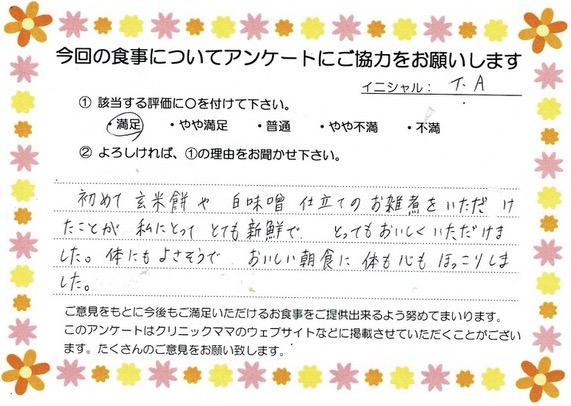 今回の食事についてアンケートにご協力をお願いします
イニシャル： T.A
① 該当する評価に○を付けて下さい。
・満足 ・やや満足 ・普通 ・やや不満 ・不満
② よろしければ、①の理由をお聞かせ下さい。
初めて 玄米餅や 白味噌 仕立ての お雑煮を いただけ
たことが 私にとって とても 新鮮で、 とっても おいしく いただけま
した。 体にも よさそうで おいしい 朝食に 体も 心も ほっこりしま
した。
ご意見をもとに今後もご満足いただけるお食事をご提供出来るよう努めてまいります。
このアンケートはクリニックママのウェブサイトなどに掲載させていただくことがござい
ます。たくさんのご意見をお願い致します。